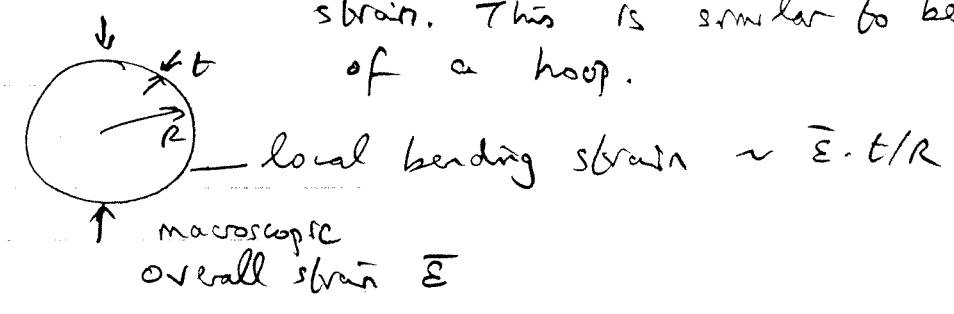 strain. This is similar to be
of a hoop.
t
R
local bending strain ~ ε̅. t/R
macroscopic
overall strain ε̅